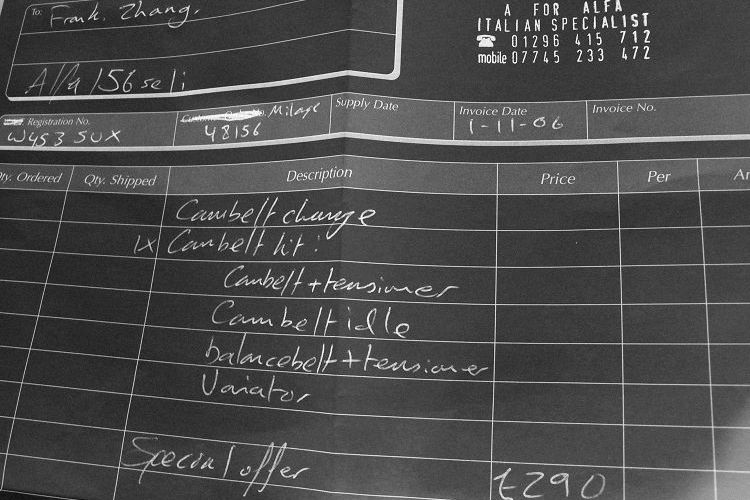 A FOR ALFA
ITALIAN SPECIALIST
☎ 01296 415 712
mobile 07745 233 472
To: Frank. Zhang.
Alfa 156 seli
Registration No.
W453 SUX
Milage
48156
Supply Date
Invoice Date
1-11-06
Invoice No.
Qty. Ordered
Qty. Shipped
Description
Price
Per
Cambelt change
1X Cambelt kit:
Cambelt + tensioner
Cambelt idle
balancebelt + tensioner
Variator
Special offer
£290